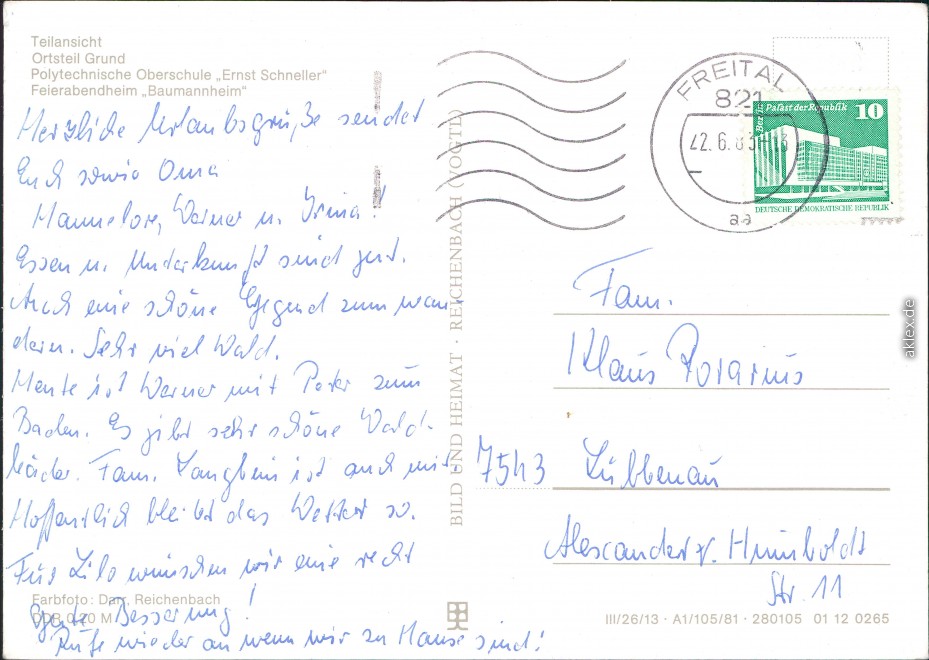 Teilansicht
Ortsteil Grund
Polytechnische Oberschule „Ernst Schneller"
Feierabendheim „Baumannheim"
Herzliche Urlaubsgrüße sendet
Euch sowie Oma
Hannelore, Werner u. Irina!
Essen u. Unterkunft sind gut.
Auch eine schöne Gegend zum wan-
dern. Sehr viel Wald.
Heute ist Werner mit Peter zum
Baden. Es gibt sehr schöne Wald-
bäder. Fam. Langbein ist auch mit.
Hoffentlich bleibt das Wetter so.
Für Lilo wünschen wir eine recht
gute Besserung!
Rufe wieder an wenn wir zu Hause sind!
Farbfoto: Darr, Reichenbach
DDR 0,20 M
BILD UND HEIMAT · REICHENBACH (VOGTL)
FREITAL
821
22.6.83-13
aa
Berlin Palast der Republik 10
DEUTSCHE DEMOKRATISCHE REPUBLIK
Fam.
Klaus
7543 Lübbenau
Alexander v. Humboldt
Str. 11
III/26/13 · A1/105/81 · 280105 01 12 0265
aklex.de